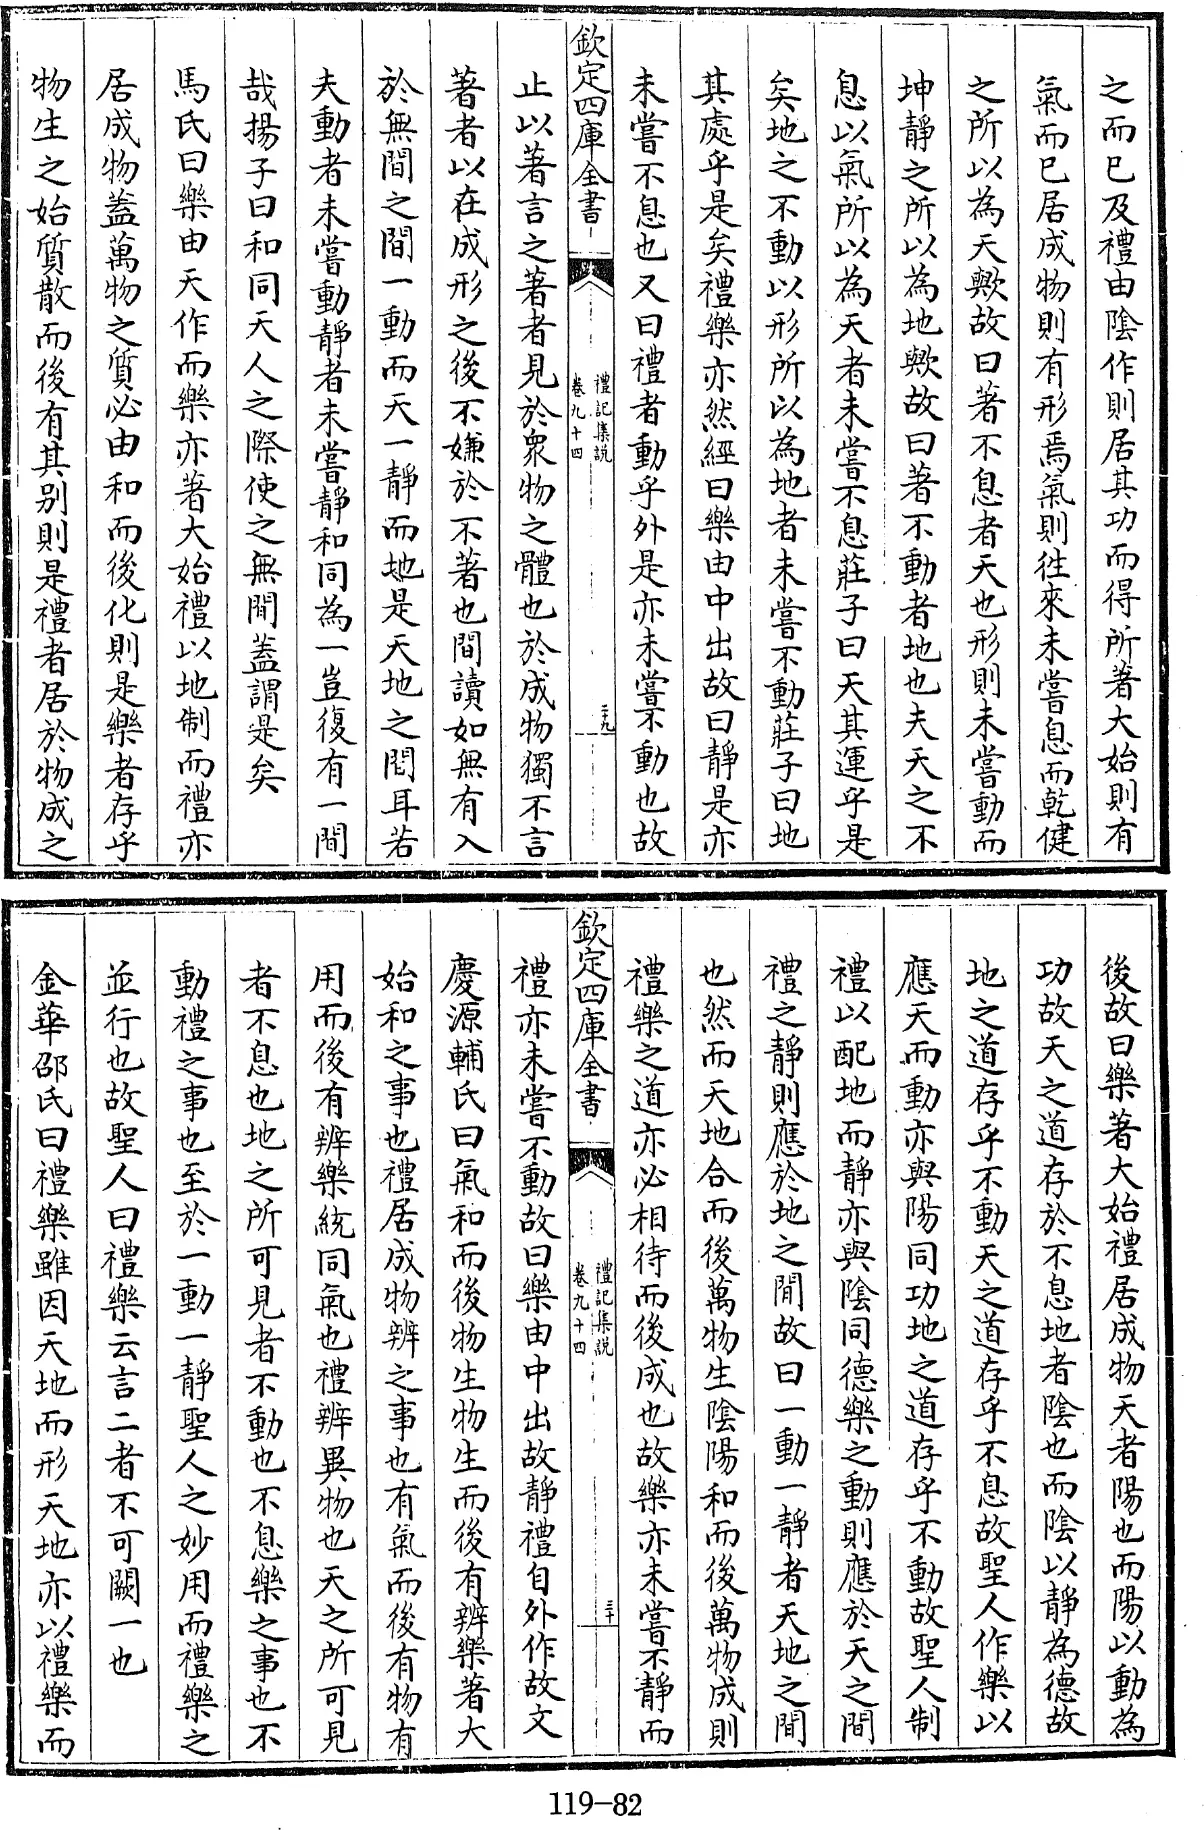 之而已及禮由陰作則居其功而得所著大始則有
氣而已居成物則有形焉氣則往來未嘗息而乾健
之所以為天歟故曰著不息者天也形則未嘗動而
坤静之所以為地歟故曰著不動者地也夫天之不
息以氣所以為天者未嘗不息莊子曰天其運乎是
矣地之不動以形所以為地者未嘗不動莊子曰地
其處乎是矣禮樂亦然經曰樂由中出故曰靜是亦
未嘗不息也又曰禮者動乎外是亦未嘗不動也故
欽定四庫全書
禮記集說
卷九十四
二十九
止以著言之著者見於衆物之體也於成物獨不言
著者以在成形之後不嫌於不著也間讀如無有入
於無間之間一動而天一靜而地是天地之間耳若
夫動者未嘗動靜者未嘗靜和同為一豈復有一間
哉揚子曰和同天人之際使之無間蓋謂是矣
馬氏曰樂由天作而樂亦著大始禮以地制而禮亦
居成物蓋萬物之質必由和而後化則是樂者存乎
物生之始質散而後有其别則是禮者居於物成之
後故曰樂著大始禮居成物天者陽也而陽以動為
功故天之道存於不息地者陰也而陰以靜為德故
地之道存乎不動天之道存乎不息故聖人作樂以
應天而動亦與陽同功地之道存乎不動故聖人制
禮以配地而靜亦與陰同德樂之動則應於天之間
禮之靜則應於地之間故曰一動一靜者天地之間
也然而天地合而後萬物生陰陽和而後萬物成則
禮樂之道亦必相待而後成也故樂亦未嘗不靜而
欽定四庫全書
禮記集說
卷九十四
三十
禮亦未嘗不動故曰樂由中出故靜禮自外作故文
慶源輔氏曰氣和而後物生物生而後有辨樂著大
始和之事也禮居成物辨之事也有氣而後有物有
用而後有辨樂統同氣也禮辨異物也天之所可見
者不息也地之所可見者不動也不息樂之事也不
動禮之事也至於一動一靜聖人之妙用而禮樂之
並行也故聖人曰禮樂云言二者不可闕一也
金華邵氏曰禮樂雖因天地而形天地亦以禮樂而
119-82